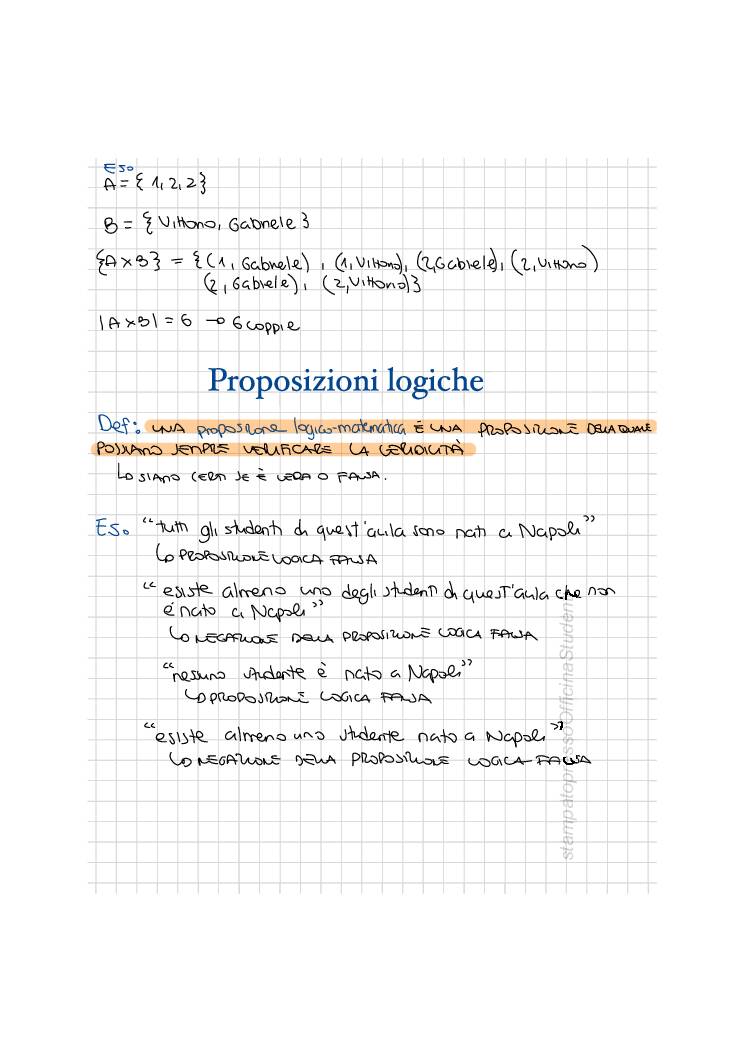 ESo
A = { 1, 2, 2 }
B = { Vittorio, Gabriele }
{A x B} = {(1, Gabriele) , (1, Vittorio), (2, Gabriele), (2, Vittorio)
(2, Gabriele), (2, Vittorio)}
|A x B| = 6 → 6 coppie
Proposizioni logiche
Def: UNA proposizione logico-matematica È UNA PROPOSIZIONE DELLA QUALE
POSSIAMO SEMPRE VERIFICARE LA VERIDICITÀ
↳ SIAMO CERTI SE È VERA O FALSA.
ES. "tutti gli studenti di quest'aula sono nati a Napoli"
↳ PROPOSIZIONE LOGICA FALSA
"esiste almeno uno degli studenti di quest'aula che non
è nato a Napoli"
↳ NEGAZIONE DELLA PROPOSIZIONE LOGICA FALSA
"nessuno studente è nato a Napoli"
↳ PROPOSIZIONE LOGICA FALSA
"esiste almeno uno studente nato a Napoli"
↳ NEGAZIONE DELLA PROPOSIZIONE LOGICA FALSA
stampatopressoOfficinaStudenti